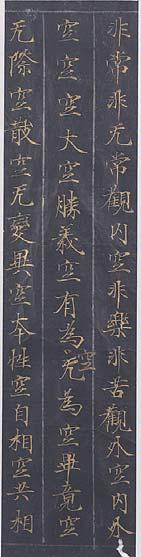 非常非无常觀内空非樂非苦觀外空内外
空空空大空勝義空有為空无為空畢竟空
无際空散空无變異空本性空自相空共相